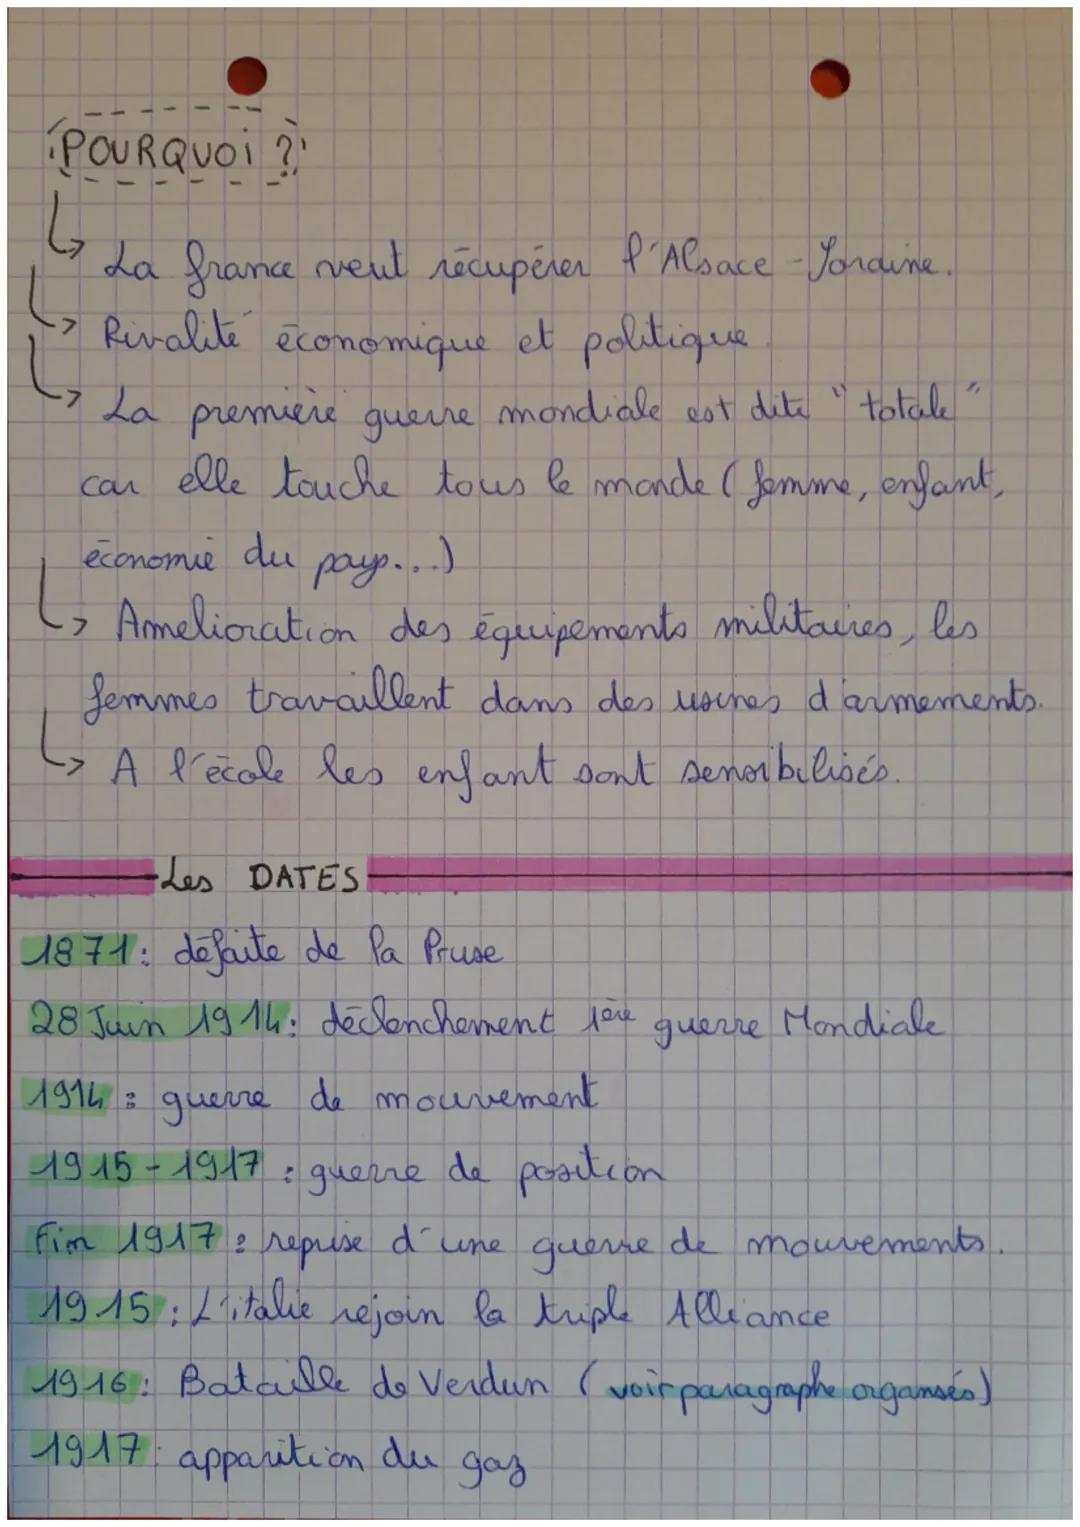 POURQUOI ?
La france veut récupérer l'Alsace-Lorraine.
Rivalité économique et politique.
La première guerre mondiale est dite "totale"
car elle touche tous le monde (femme, enfant,
économie du pays...)
Amelioration des équipements militaires, les
femmes travaillent dans des usines d'armements.
A l'école les enfant sont sensibilisés.
Les DATES
1871: défaite de la Pruse
28 Juin 1914: déclenchement 1ère guerre Mondiale
1914: guerre de mouvement
1915-1917: guerre de position
Fin 1917: reprise d'une guerre de mouvements.
1915: L'italie rejoin la triple Alliance
1916: Bataille de Verdun (voir paragraphe organsés)
1917: apparition du gaz